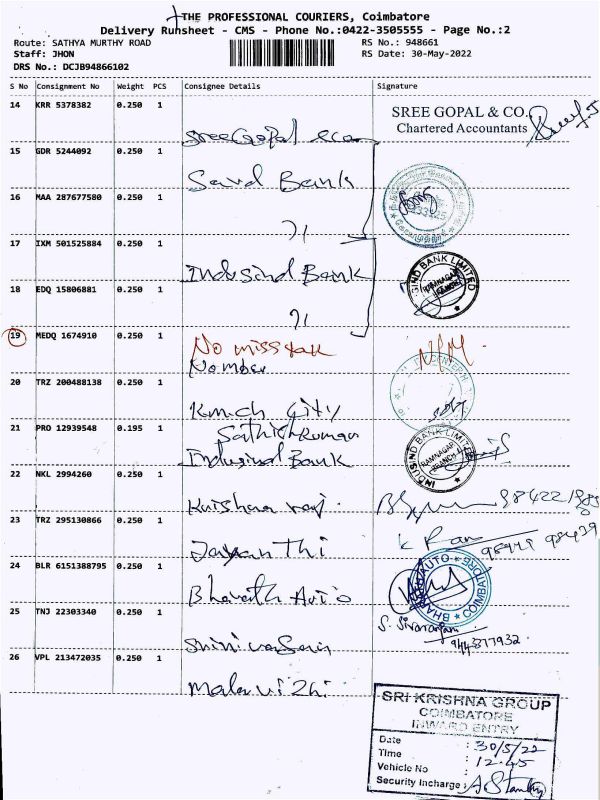 THE PROFESSIONAL COURIERS, Coimbatore
Delivery Runsheet - CMS - Phone No.:0422-3505555 - Page No.:2
Route: SATHYA MURTHY ROAD
RS No.: 948661
Staff: JHON
RS Date: 30-May-2022
DRS No.: DCJB94866102
S No Consignment No Weight PCS Consignee Details Signature
14 KRR 5378382 0.250 1
SREE GOPAL & CO.
Chartered Accountants
SreeGopal &co
15 GDR 5244092 0.250 1
Bank
16 MAA 287677580 0.250 1
17 IXM 501525884 0.250 1
Indusind Bank
IND BANK LIMITED
RAMNAGAR
18 EDQ 15806881 0.250 1
19 MEDQ 1674910 0.250 1
No
Nomber
20 TRZ 200488138 0.250 1
Kmch City
21 PRO 12939548 0.195 1
Sathishkumar
Indusind Bank
INDUSIND BANK LIMITED
RAMNAGAR
BRANCH
22 NKL 2994260 0.250 1
Krishna raj.
98422
23 TRZ 295130866 0.250 1
Jayanthi
K Ram
24 BLR 6151388795 0.250 1
Bharath Auto
BHARATH AUTO
COIMBATORE
25 TNJ 22303340 0.250 1
S. Sivarangam
944377932
Shrinivasan
26 VPL 213472035 0.250 1
Malarvizhi
SRI KRISHNA GROUP
COIMBATORE
INWARD ENTRY
Date : 30/5/22
Time : 12.45
Vehicle No :
Security Incharge :